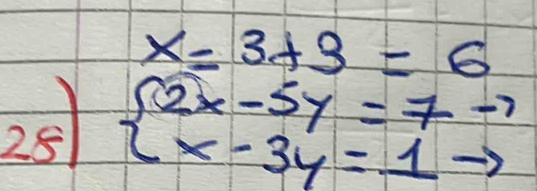 x = 3+3 = 6
28) { 2x - 5y = 7 →
x - 3y = 1 →